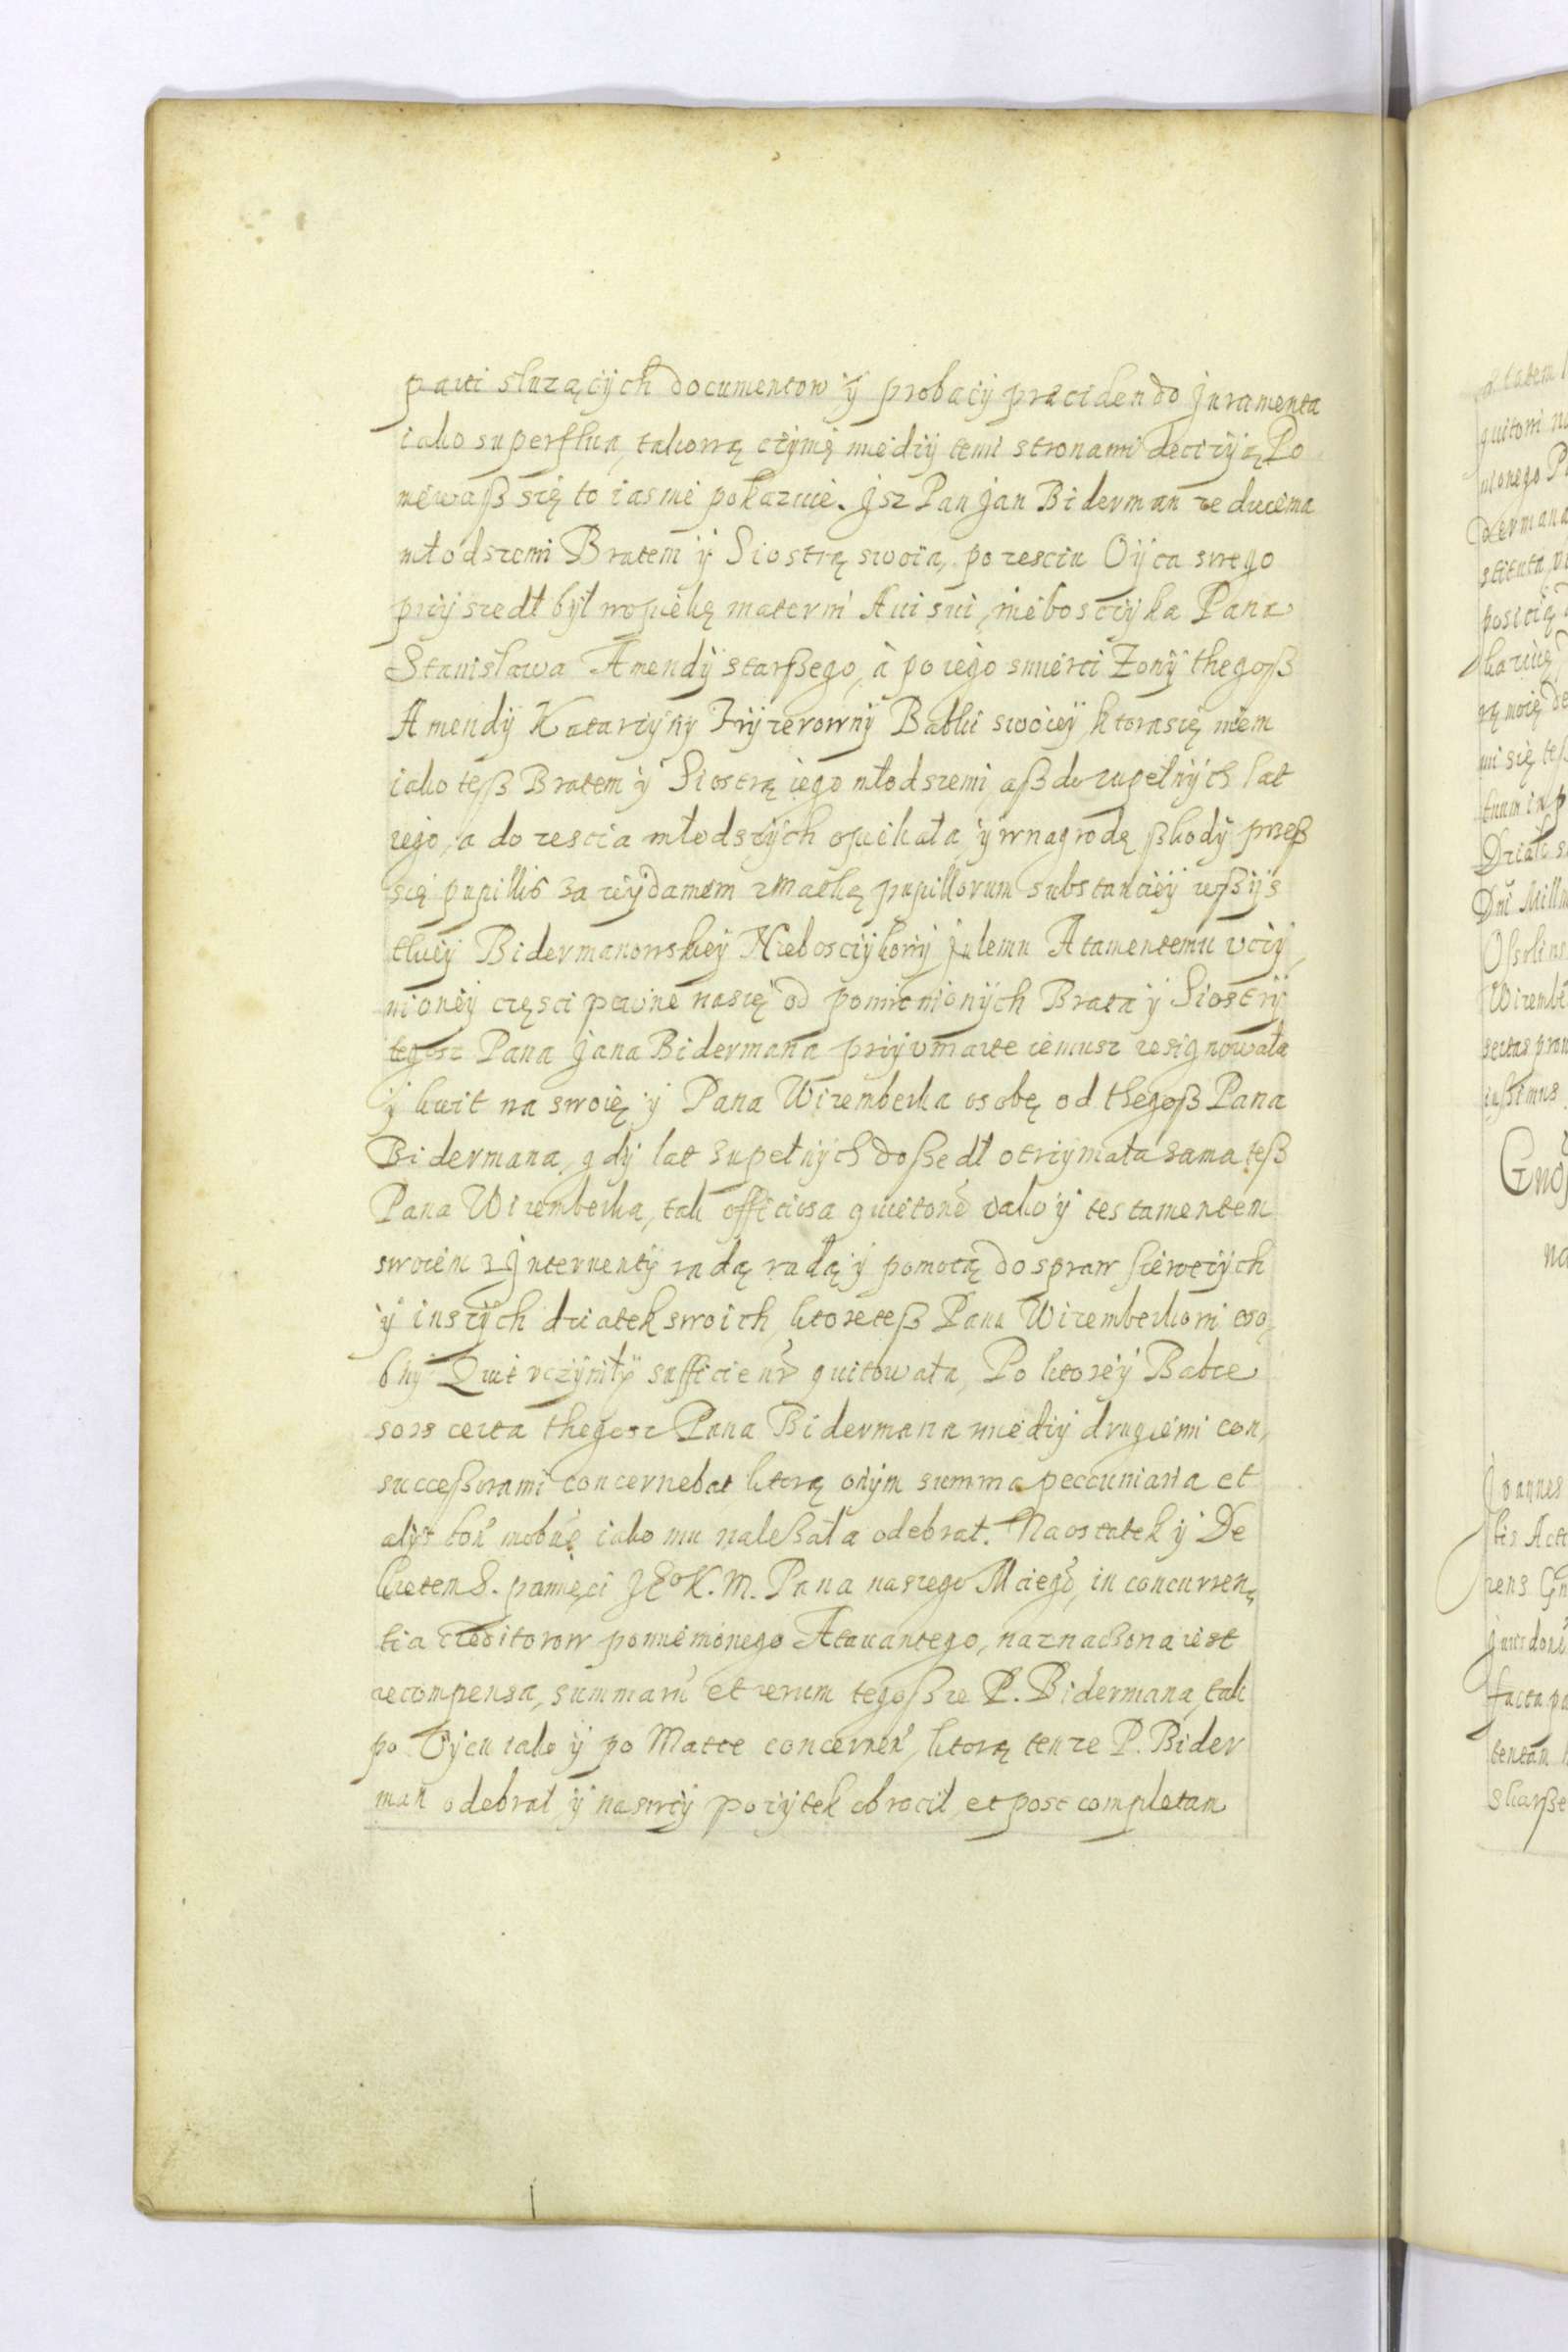 parti sluzących documentow ÿ probacÿ præcidendo Juramenta
iako superflua, takową cżÿnię miedzÿ temi stronami decizÿą Po
niewaß się to iasnie pokazuie. Jsz Pan Jan Biderman ze dwiema
młodszemi Bratem ÿ Siostrą swoią, po zesciu Oÿca swego
przÿszedł bÿł w opiekę materni Aui sui, nieboszczÿka Pana
Stanisława Amendÿ starßego, à po iego smierci Zonÿ thegoß
Amendÿ Katarzÿnÿ Frÿzerownÿ Babki swoieÿ, ktora się niem
iako teß Bratem ÿ Siostrą iego młodszemi aß do zupełnÿch lat
iego, a do zescia młodszÿch opiekała, ÿ w nagrodę ßkodÿ przeß
się pupillis za wÿdaniem z Matką pupillorum substancieÿ wßÿs
tkieÿ Bidermanowskieÿ Nieboscżÿkowi Julemu Atamentemu vcżÿ
nioneÿ częsci pewne na się od pomienionÿch Brata ÿ Siostrÿ
tegosz Pana Jana Bidermana przÿvmarłe iemusz resignowała
ÿ kwit na swoię ÿ Pana Wizemberka osobę od thegoß Pana
Bidermana, gdÿ lat zupełnÿch doßedł otrzÿmała sama teß
Pana Wizemberka, tak officiosa quietone iako ÿ testamentem
swoiem z Jnterventÿ radą ÿ pomocą do spraw sierocÿch
ÿ inszÿch dziatek swoich, ktore teß Panu Wizemberkowi oso
bnÿ Quit vczÿniłÿ sufficienr quitowała, Po ktoreÿ Babce
sors certa thegosz Pana Bidermana miedzÿ drugiemi con,
succeßorami concernebat ktorą onÿm summa peccuniaria et
alijs bon mobne iako mu należała odebrał. Na ostatek ÿ De
kretem S. pamięci JEo K. M. Pana naszego Mciego, in concurren
tia creditorow pomienionego Atauantego, naznaczona iest
recompensa, summaru et rerum tegoß ze P. Bidermana, tak
po Oÿcu iako ÿ po Matce concernen, ktorą tenze P. Bider
man odebrał ÿ na swoÿ pozÿtek obrocił, et post completam